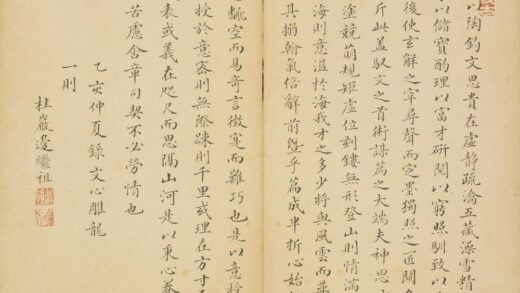 以陶鈞文思貴在虛靜疏瀹五藏澡雪精
以儲寶酌理以富才研閱以窮照馴致以
後使玄解之宰尋聲而定墨獨照之匠闚
斤此蓋馭文之首術謀篇之大端夫神思
塗競萌規矩虛位刻鏤無形登山則情滿
海則意溢於海我才之多少將與風雲而並
其搦翰氣倍辭前曁乎篇成半折心始
飜空而易奇言徵寔而難巧也是以意授
授於意密則無際疎則千里或理在方寸
表或義在咫尺而思隔山河是以秉心養
苦慮含章司契不必勞情也
乙亥仲夏錄文心雕龍
一則
桂巖邊繼祖